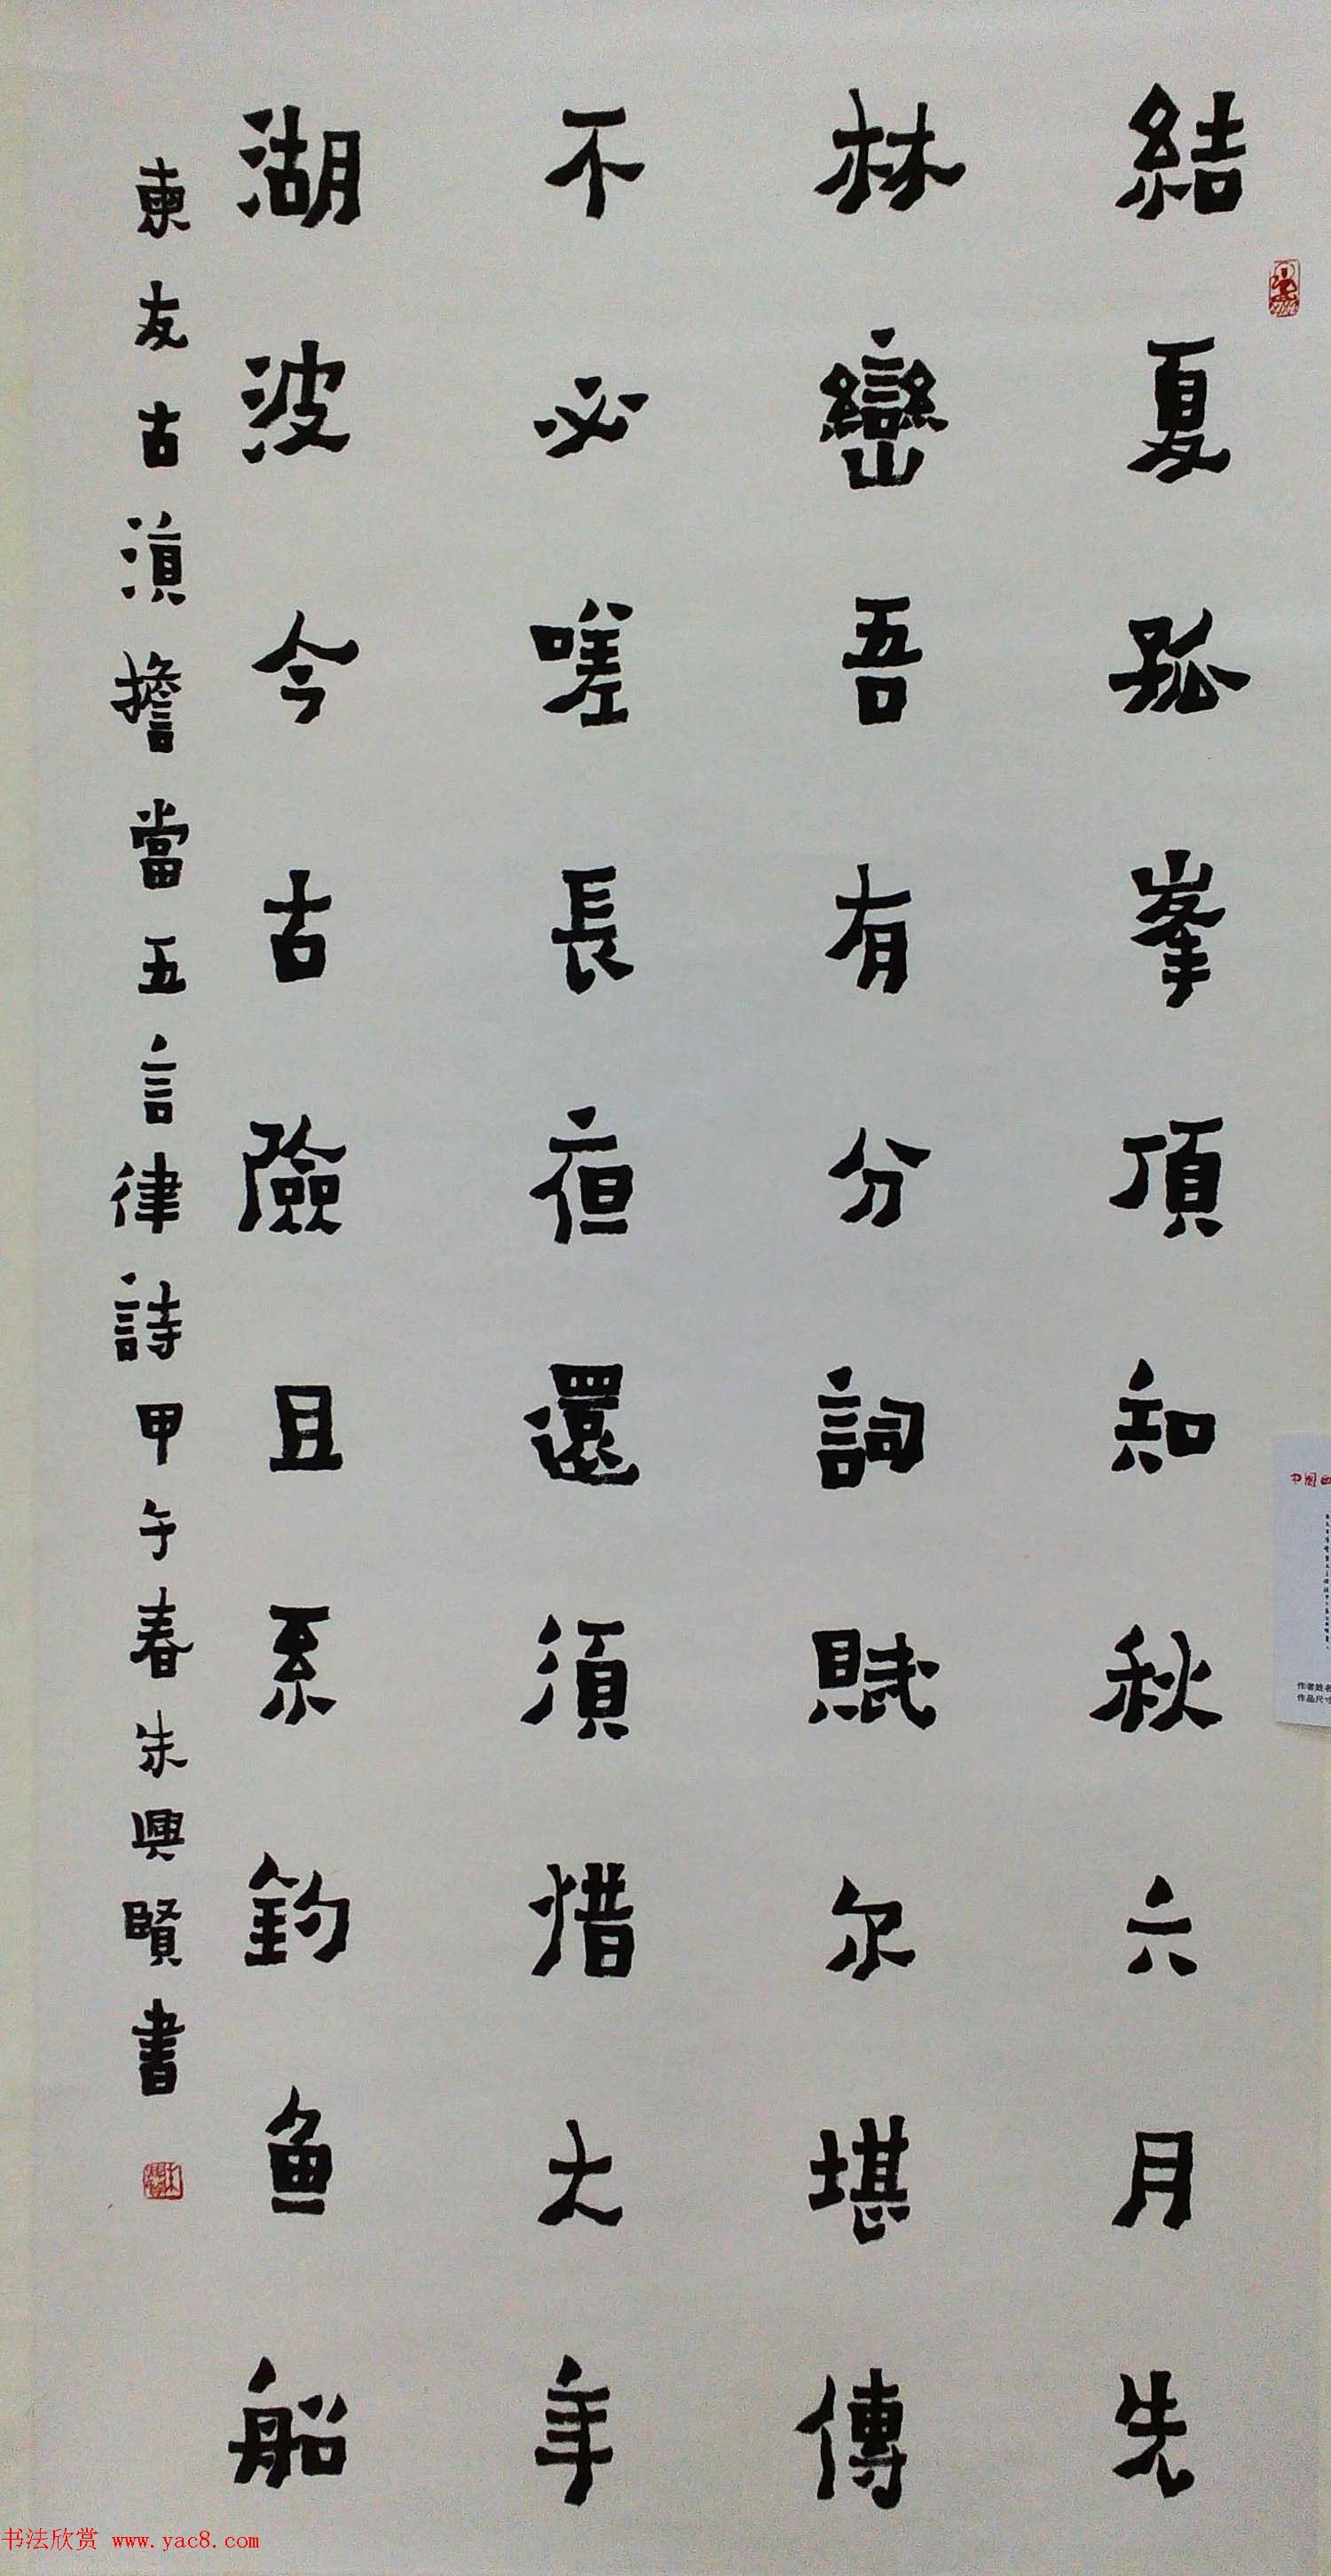 結夏孤峯頂知秋六月先
林巒吾有分詞賦尔堪傳
不必嗟長夜還須惜大年
湖波今古險且系釣魚船
東友古滇擔當五言律詩甲午春朱興賢書
中國
作者姓名
作品尺寸
书法欣赏 www.yac8.com